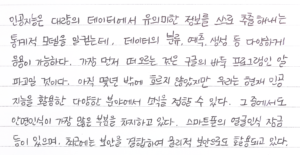 인공지능은 대량의 데이터에서 유의미한 정보를 스스로 추출해내는
통계적 모델을 말하는데, 데이터의 분류, 예측, 생성 등 다양하게
응용이 가능하다. 가장 먼저 떠오르는 것은 구글의 바둑 프로그램인 알
파고일 것이다. 아직 몇년 밖에 흐르지 않았지만 우리는 현재 인공
지능을 활용한 다양한 분야에서 소식을 접할 수 있다. 그 중에서도
안면인식이 가장 많은 부분을 차지하고 있다. 스마트폰의 얼굴인식 잠금
등이 있으며, 최근에는 보안을 결합하여 물리적 보안으로도 활용되고 있다.